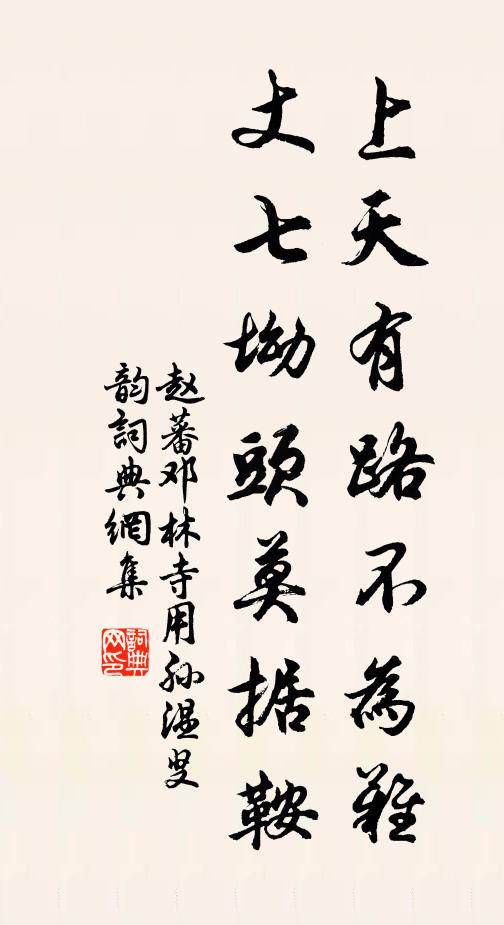 上天有路不為難
丈七坳頭莫据鞍
赵蕃邓林寺用孙温叟
韵詞典網集
詞典网印